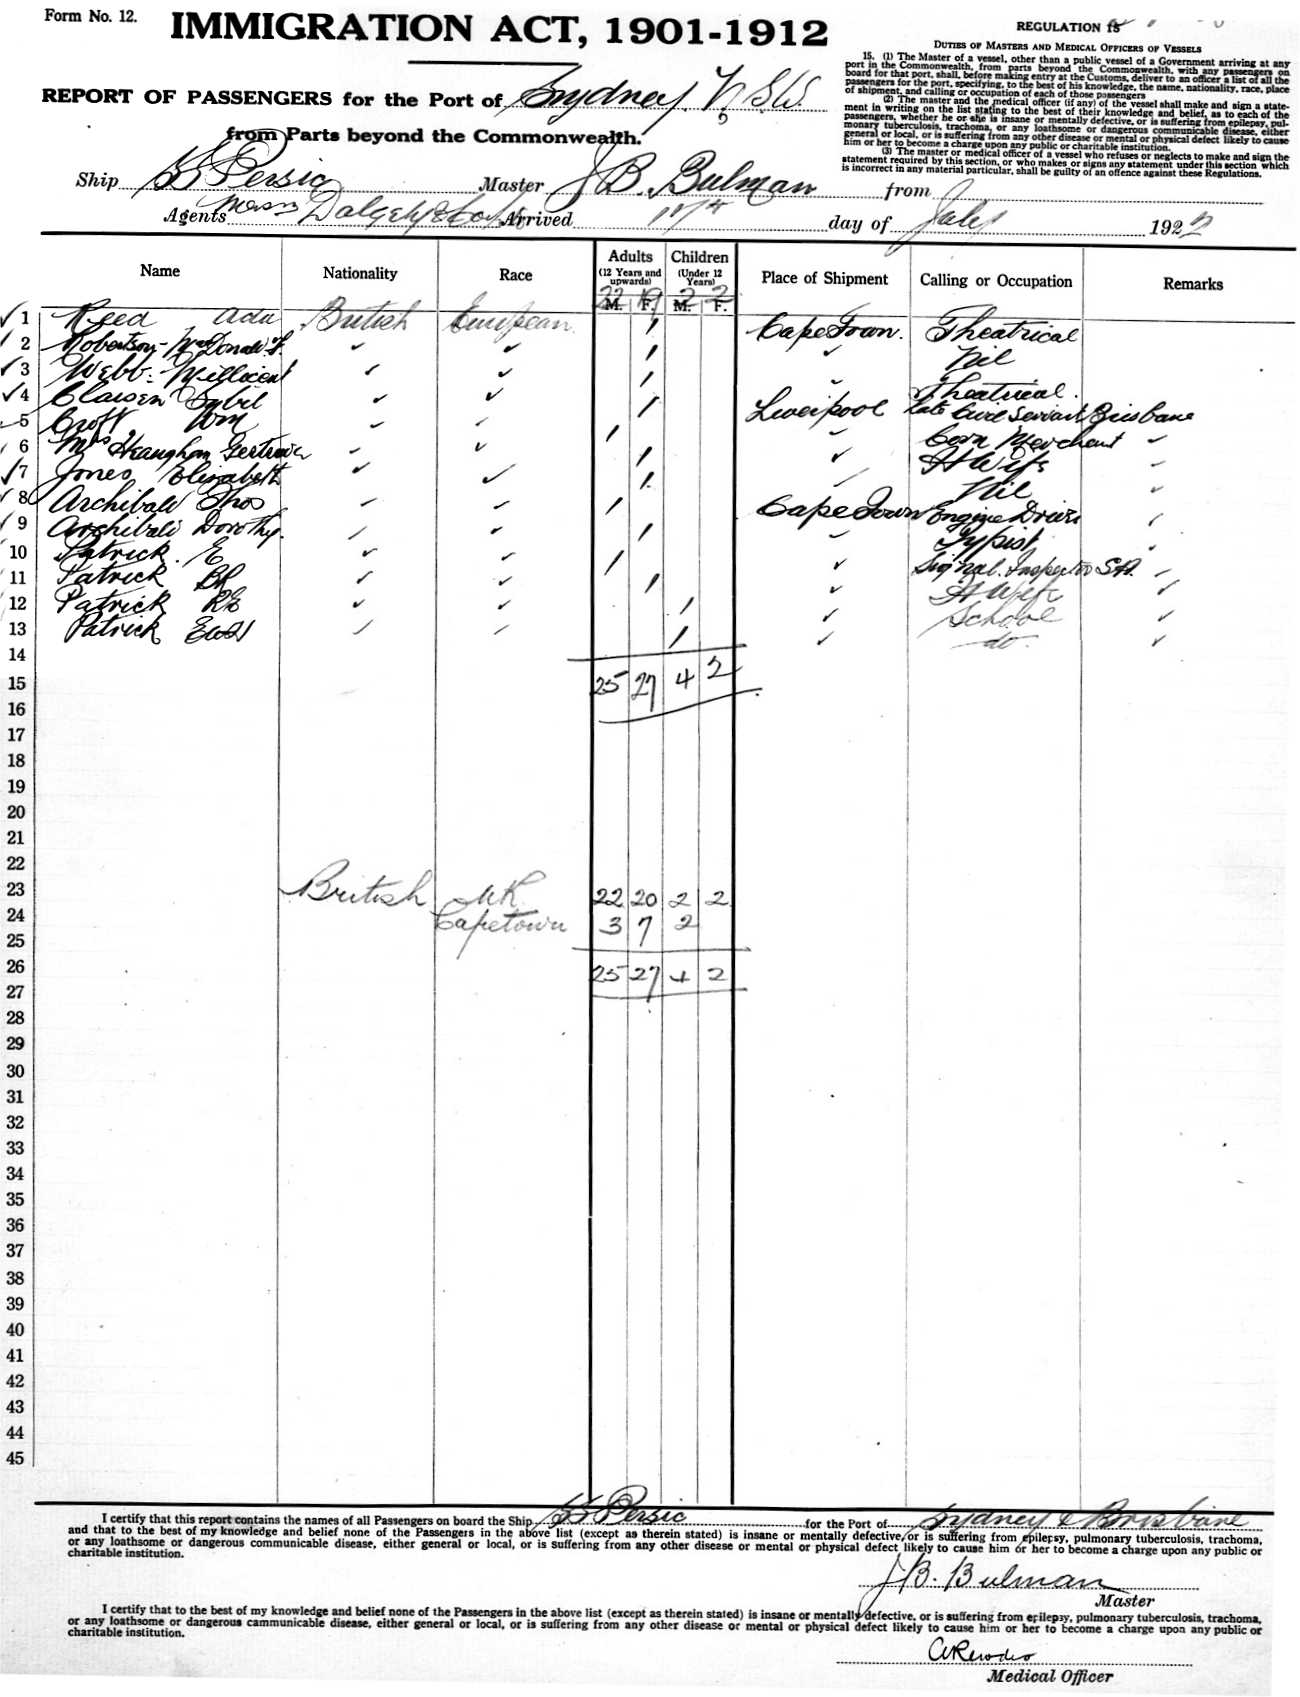 Form No. 12.
IMMIGRATION ACT, 1901-1912
REPORT OF PASSENGERS for the Port of Sydney N.S.W.
from Parts beyond the Commonwealth.
Ship SS Persic Master J B. Bulman from
Agents Messrs Dalgety & Co Arrived day of July 1922
REGULATION 15
DUTIES OF MASTERS AND MEDICAL OFFICERS OF VESSELS
15. (1) The Master of a vessel, other than a public vessel of a Government arriving at any
port in the Commonwealth, from parts beyond the Commonwealth, with any passengers on
board for that port, shall, before making entry at the Customs, deliver to an officer a list of all the
passengers for the port, specifying, to the best of his knowledge, the name, nationality, race, place
of shipment, and calling or occupation of each of those passengers
(2) The master and the medical officer (if any) of the vessel shall make and sign a state-
ment in writing on the list stating to the best of their knowledge and belief, as to each of the
passengers, whether he or she is insane or mentally defective, or is suffering from epilepsy, pul-
monary tuberculosis, trachoma, or any loathsome or dangerous communicable disease, either
general or local, or is suffering from any other disease or mental or physical defect likely to cause
him or her to become a charge upon any public or charitable institution.
(3) The master or medical officer of a vessel who refuses or neglects to make and sign the
statement required by this section, or who makes or signs any statement under this section which
is incorrect in any material particular, shall be guilty of an offence against these Regulations.
Name Nationality Race Adults (12 Years and upwards) Children (Under 12 Years) Place of Shipment Calling or Occupation Remarks
22 19 2 2
M. F. M. F.
1 Reed Ada British European 1 Cape Town. Theatrical
2 Robertson- McDonald F. ✓ ✓ 1 ✓ Nil
3 Webb- Millicent ✓ ✓ 1 ✓ Theatrical.
4 Clausen Sybil ✓ ✓ 1 Liverpool late Civil Servant Brisbane
5 Croft Wm ✓ ✓ 1 ✓ Corn Merchant ✓
6 Mrs Gertrude ✓ ✓ 1 ✓ H Wife ✓
7 Jones Elizabeth ✓ ✓ 1 Nil ✓
8 Archibald Thos ✓ ✓ 1 Cape Town Engine Driver ✓
9 Archibald Dorothy. ✓ ✓ 1 ✓ Typist ✓
10 Patrick. E ✓ ✓ 1 ✓ Signal. Inspector S.A. ✓
11 Patrick ✓ ✓ 1 ✓ H Wife ✓
12 Patrick RE ✓ ✓ 1 ✓ School ✓
13 Patrick ✓ ✓ 1 ✓ do. ✓
14
15 25 27 4 2
16
17
18
19
20
21
22
23 British UK 22 20 2 2
24 Capetown 3 7 2
25
26 25 27 4 2
27
28
29
30
31
32
33
34
35
36
37
38
39
40
41
42
43
44
45
I certify that this report contains the names of all Passengers on board the Ship SS Persic for the Port of Sydney & Brisbane
and that to the best of my knowledge and belief none of the Passengers in the above list (except as therein stated) is insane or mentally defective, or is suffering from epilepsy, pulmonary tuberculosis, trachoma,
or any loathsome or dangerous communicable disease, either general or local, or is suffering from any other disease or mental or physical defect likely to cause him or her to become a charge upon any public or
charitable institution.
J B. Bulman
Master
I certify that to the best of my knowledge and belief none of the Passengers in the above list (except as therein stated) is insane or mentally defective, or is suffering from epilepsy, pulmonary tuberculosis, trachoma,
or any loathsome or dangerous cammunicable disease, either general or local, or is suffering from any other disease or mental or physical defect likely to cause him or her to become a charge upon any public or
charitable institution.
Medical Officer